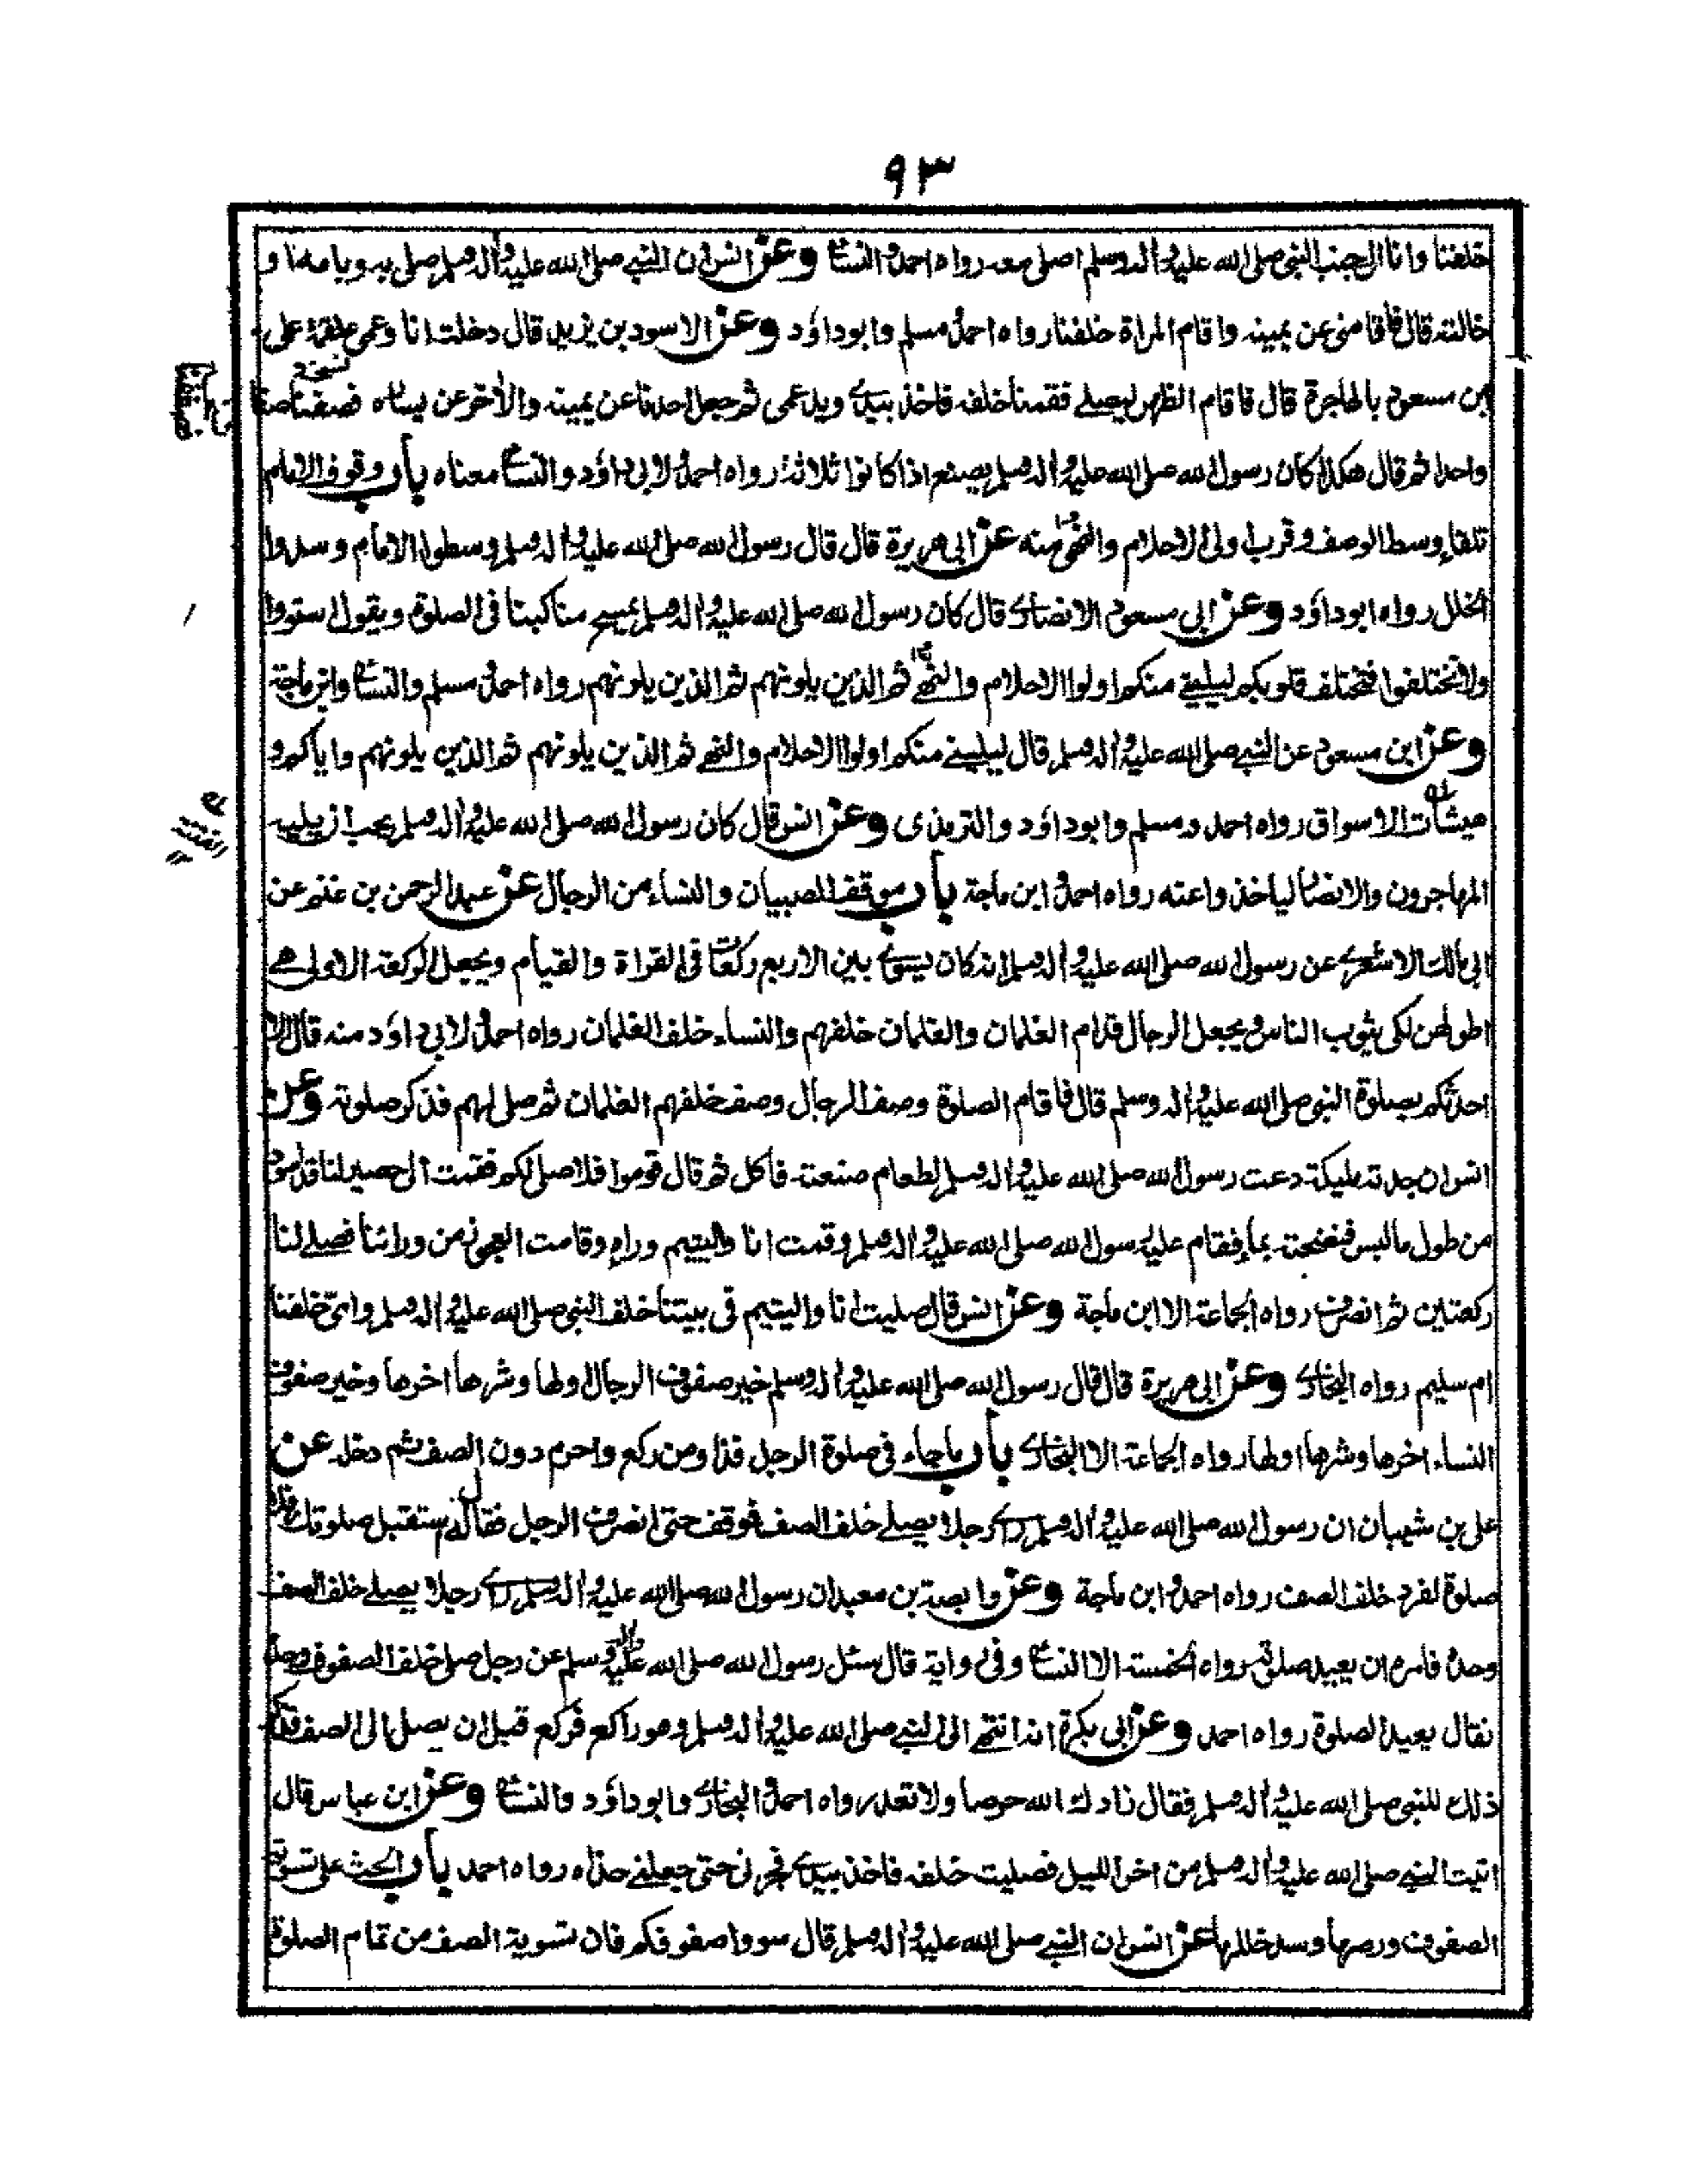 ٩٣
خلفنا وانا الى جنب النبي صلى الله عليه واله وسلم اصلى معه رواه احمد والنسائى وعن انس ان النبي صلى الله عليه واله وسلم صلى به وبامه او
خالته قال فاقامنى عن يمينه واقام المراة خلفنا رواه احمد ومسلم وابوداؤد وعن الاسود بن يزيد قال دخلت انا وعمى علقمة على
ابن مسعود بالهاجرة قال فاقام الظهر ليصلى فقمنا خلفه فاخذ بيدى ويد عمى ثم جعل احدنا عن يمينه والاخر عن يساره فصففنا صفا
واحدا ثم قال هكذا كان رسول الله صلى الله عليه واله وسلم يصنع اذا كانوا ثلاثة رواه احمد ولابى داؤد والنسائى معناه باب وقوف الامام
تلقاء وسط الصف وقرب اولى الاحلام والنهى منه عن ابى هريرة قال قال رسول الله صلى الله عليه واله وسلم وسطوا الامام وسدوا
الخلل رواه ابوداؤد وعن ابى مسعود الانصارى قال كان رسول الله صلى الله عليه واله وسلم يمسح مناكبنا فى الصلوة ويقول استووا
ولا تختلفوا فتختلف قلوبكم ليلينى منكم اولوا الاحلام والنهى ثم الذين يلونهم ثم الذين يلونهم رواه احمد ومسلم والنسائى وابن ماجة
وعن ابن مسعود عن النبي صلى الله عليه واله وسلم قال ليلينى منكم اولوا الاحلام والنهى ثم الذين يلونهم ثم الذين يلونهم واياكم و
هيشات الاسواق رواه احمد ومسلم وابوداؤد والترمذى وعن انس قال كان رسول الله صلى الله عليه واله وسلم يحب ان يليه
المهاجرون والانصار لياخذوا عنه رواه احمد وابن ماجة باب موقف الصبيان والنساء من الرجال عن عبد الرحمن بن غنم عن
ابى مالك الاشعرى عن رسول الله صلى الله عليه واله وسلم انه كان يسوى بين الاربع ركعات فى القراة والقيام ويجعل الركعة الاولى هى
اطولهن لكى يثوب الناس ويجعل الرجال قدام الغلمان والغلمان خلفهم والنساء خلف الغلمان رواه احمد ولابى داؤد منه قال الا
احدثكم بصلوة النبى صلى الله عليه واله وسلم قال فاقام الصلوة وصف الرجال وصف خلفهم الغلمان ثم صلى بهم فذكر صلوته وعن
انس ان جدته مليكة دعت رسول الله صلى الله عليه واله وسلم لطعام صنعته فاكل ثم قال قوموا فلاصلى لكم فقمت الى حصير لنا قد اسود
من طول ما لبس فنضحته بماء فقام عليه رسول الله صلى الله عليه واله وسلم وقمت انا واليتيم وراءه وقامت العجوز من ورائنا فصلى لنا
ركعتين ثم انصرف رواه الجماعة الا ابن ماجة وعن انس قال صليت انا واليتيم فى بيتنا خلف النبى صلى الله عليه واله وسلم وامى خلفنا
ام سليم رواه البخارى وعن ابى هريرة قال قال رسول الله صلى الله عليه واله وسلم خير صفوف الرجال اولها وشرها اخرها وخير صفوف
النساء اخرها وشرها اولها رواه الجماعة الا البخارى باب ماجاء فى صلوة الرجل فذا ومن ركع واحرم دون الصف ثم دخله عن
على بن شيبان ان رسول الله صلى الله عليه واله وسلم راى رجلا يصلى خلف الصف فوقف حتى انصرف الرجل فقال له استقبل صلوتك فلا
صلوة لفرد خلف الصف رواه احمد وابن ماجة وعن وابصة بن معبد ان رسول الله صلى الله عليه واله وسلم راى رجلا يصلى خلف الصف
وحده فامره ان يعيد صلوته رواه الخمسة الا النسائى وفى رواية قال سئل رسول الله صلى الله عليه واله وسلم عن رجل صلى خلف الصفوف وحده
فقال يعيد الصلوة رواه احمد وعن ابى بكرة انه انتهى الى النبي صلى الله عليه واله وسلم وهو راكع فركع قبل ان يصل الى الصف فذكر
ذلك للنبي صلى الله عليه واله وسلم فقال زادك الله حرصا ولا تعد رواه احمد والبخارى وابوداؤد والنسائى وعن ابن عباس قال
اتيت النبي صلى الله عليه واله وسلم من اخر الليل فصليت خلفه فاخذ بيدى فجرنى حتى جعلنى حذاه رواه احمد باب الحث على تسوية
الصفوف ورصها وسد خللها عن انس ان النبي صلى الله عليه واله وسلم قال سووا صفوفكم فان تسوية الصف من تمام الصلوة